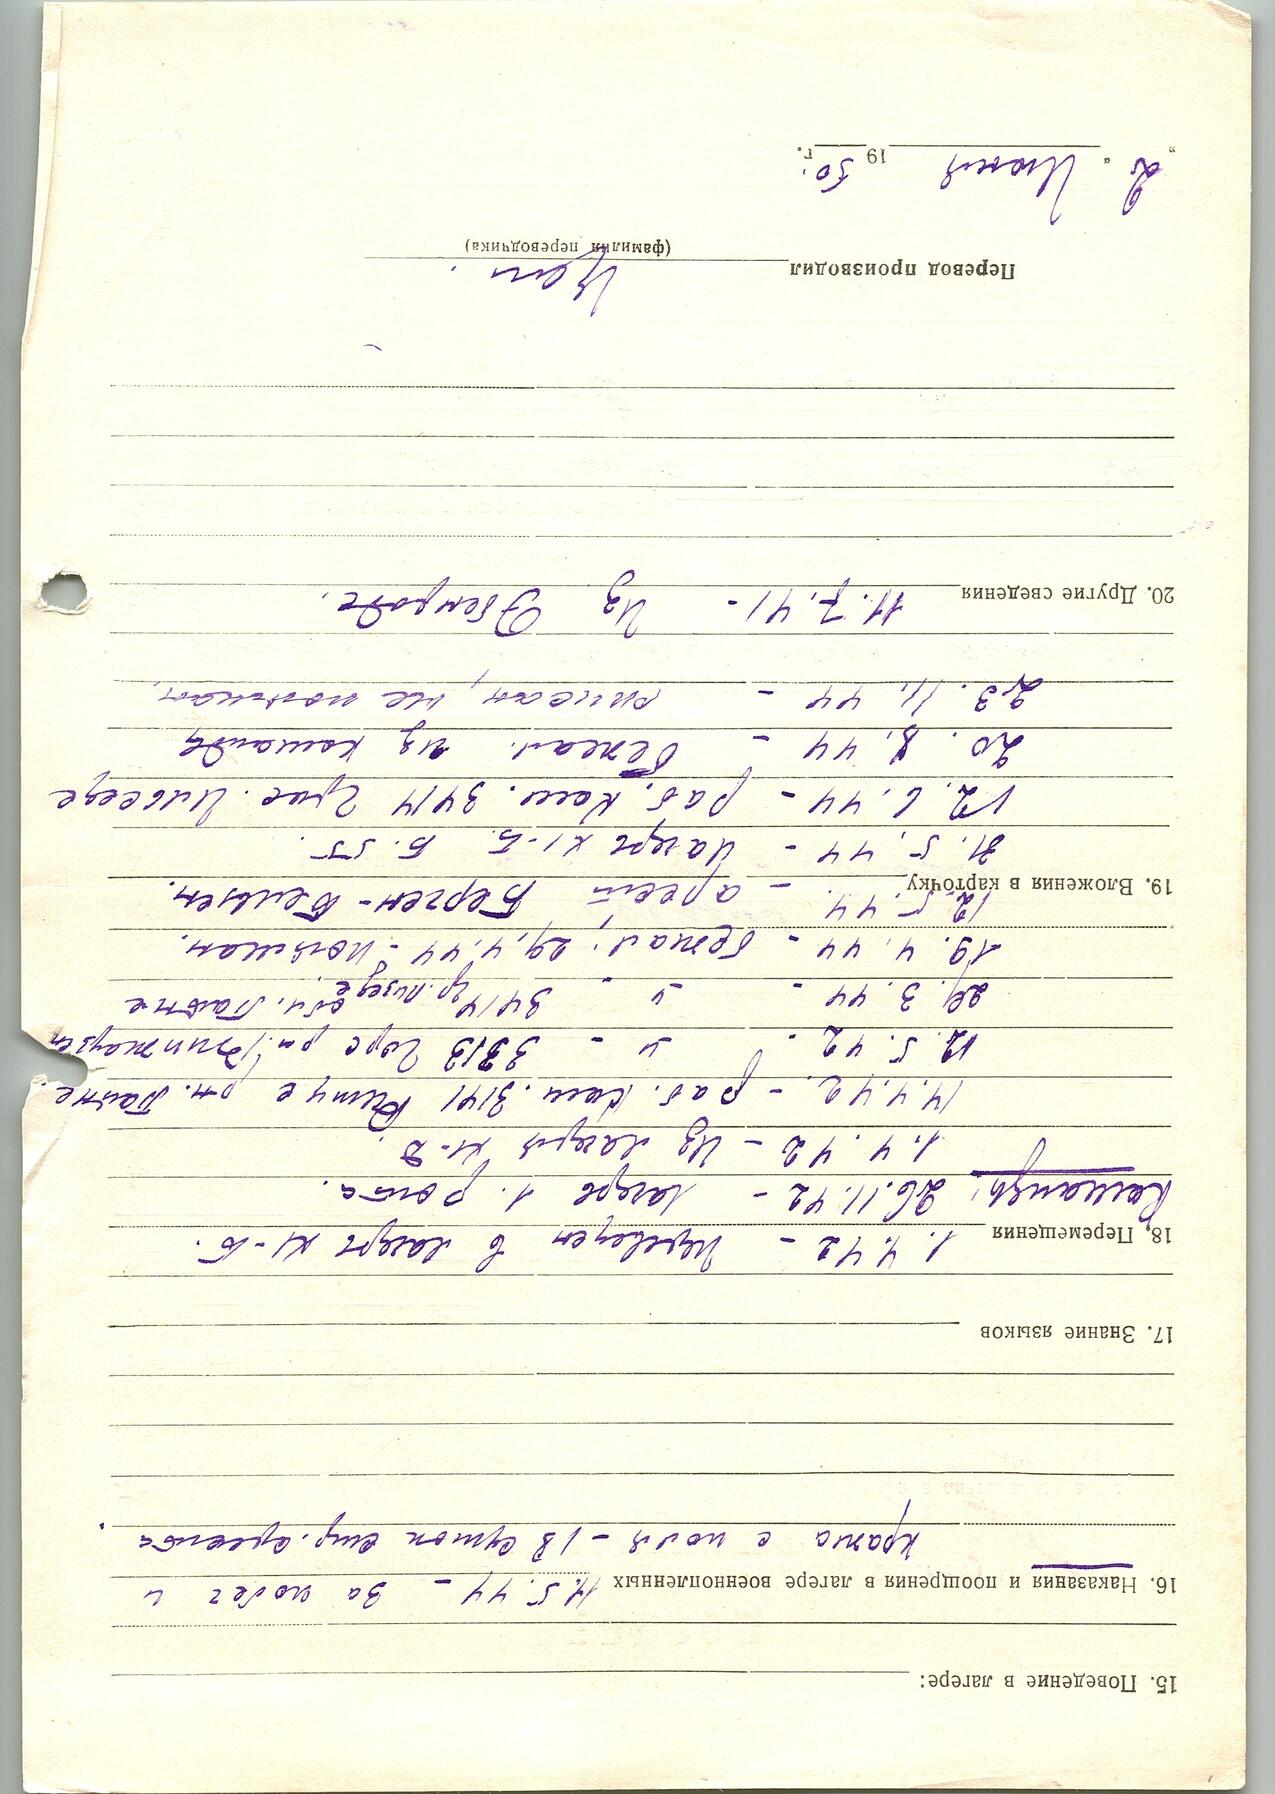 15. Поведение в лагере:
16. Наказания и поощрения в лагере военнопленных 11.5.44 – За побег и
кража с поля – 13 суток стр. ареста.
17. Знание языков
18. Перемещения 1.4.42 – Переведен в лагерь XI-Б.
Команды: 26.11.42 – лагерь 1. рота.
1.4.42 – Из лагеря XI-Д
14.4.42. – раб. ком. 3141 рн. Пайне.
12.5.42. – " – 3313
29.3.44 – " – 3414 обл. Пайне
19.4.44 – бежал; 29.4.44 – пойман.
12.5.44. – арест Берген-Бельзен.
19. Вложения в карточку
31.5.44 – лагерь XI-Б. Б. 55
12.6.44 – раб. ком. 3414 Грос. Ильседе
20.8.44 – бежал из команды
23.11.44 – списан, не пойман.
20. Другие сведения 11.7.41 – Из
Перевод производил
(фамилия переводчика)
„2“ Июня 1950 г.